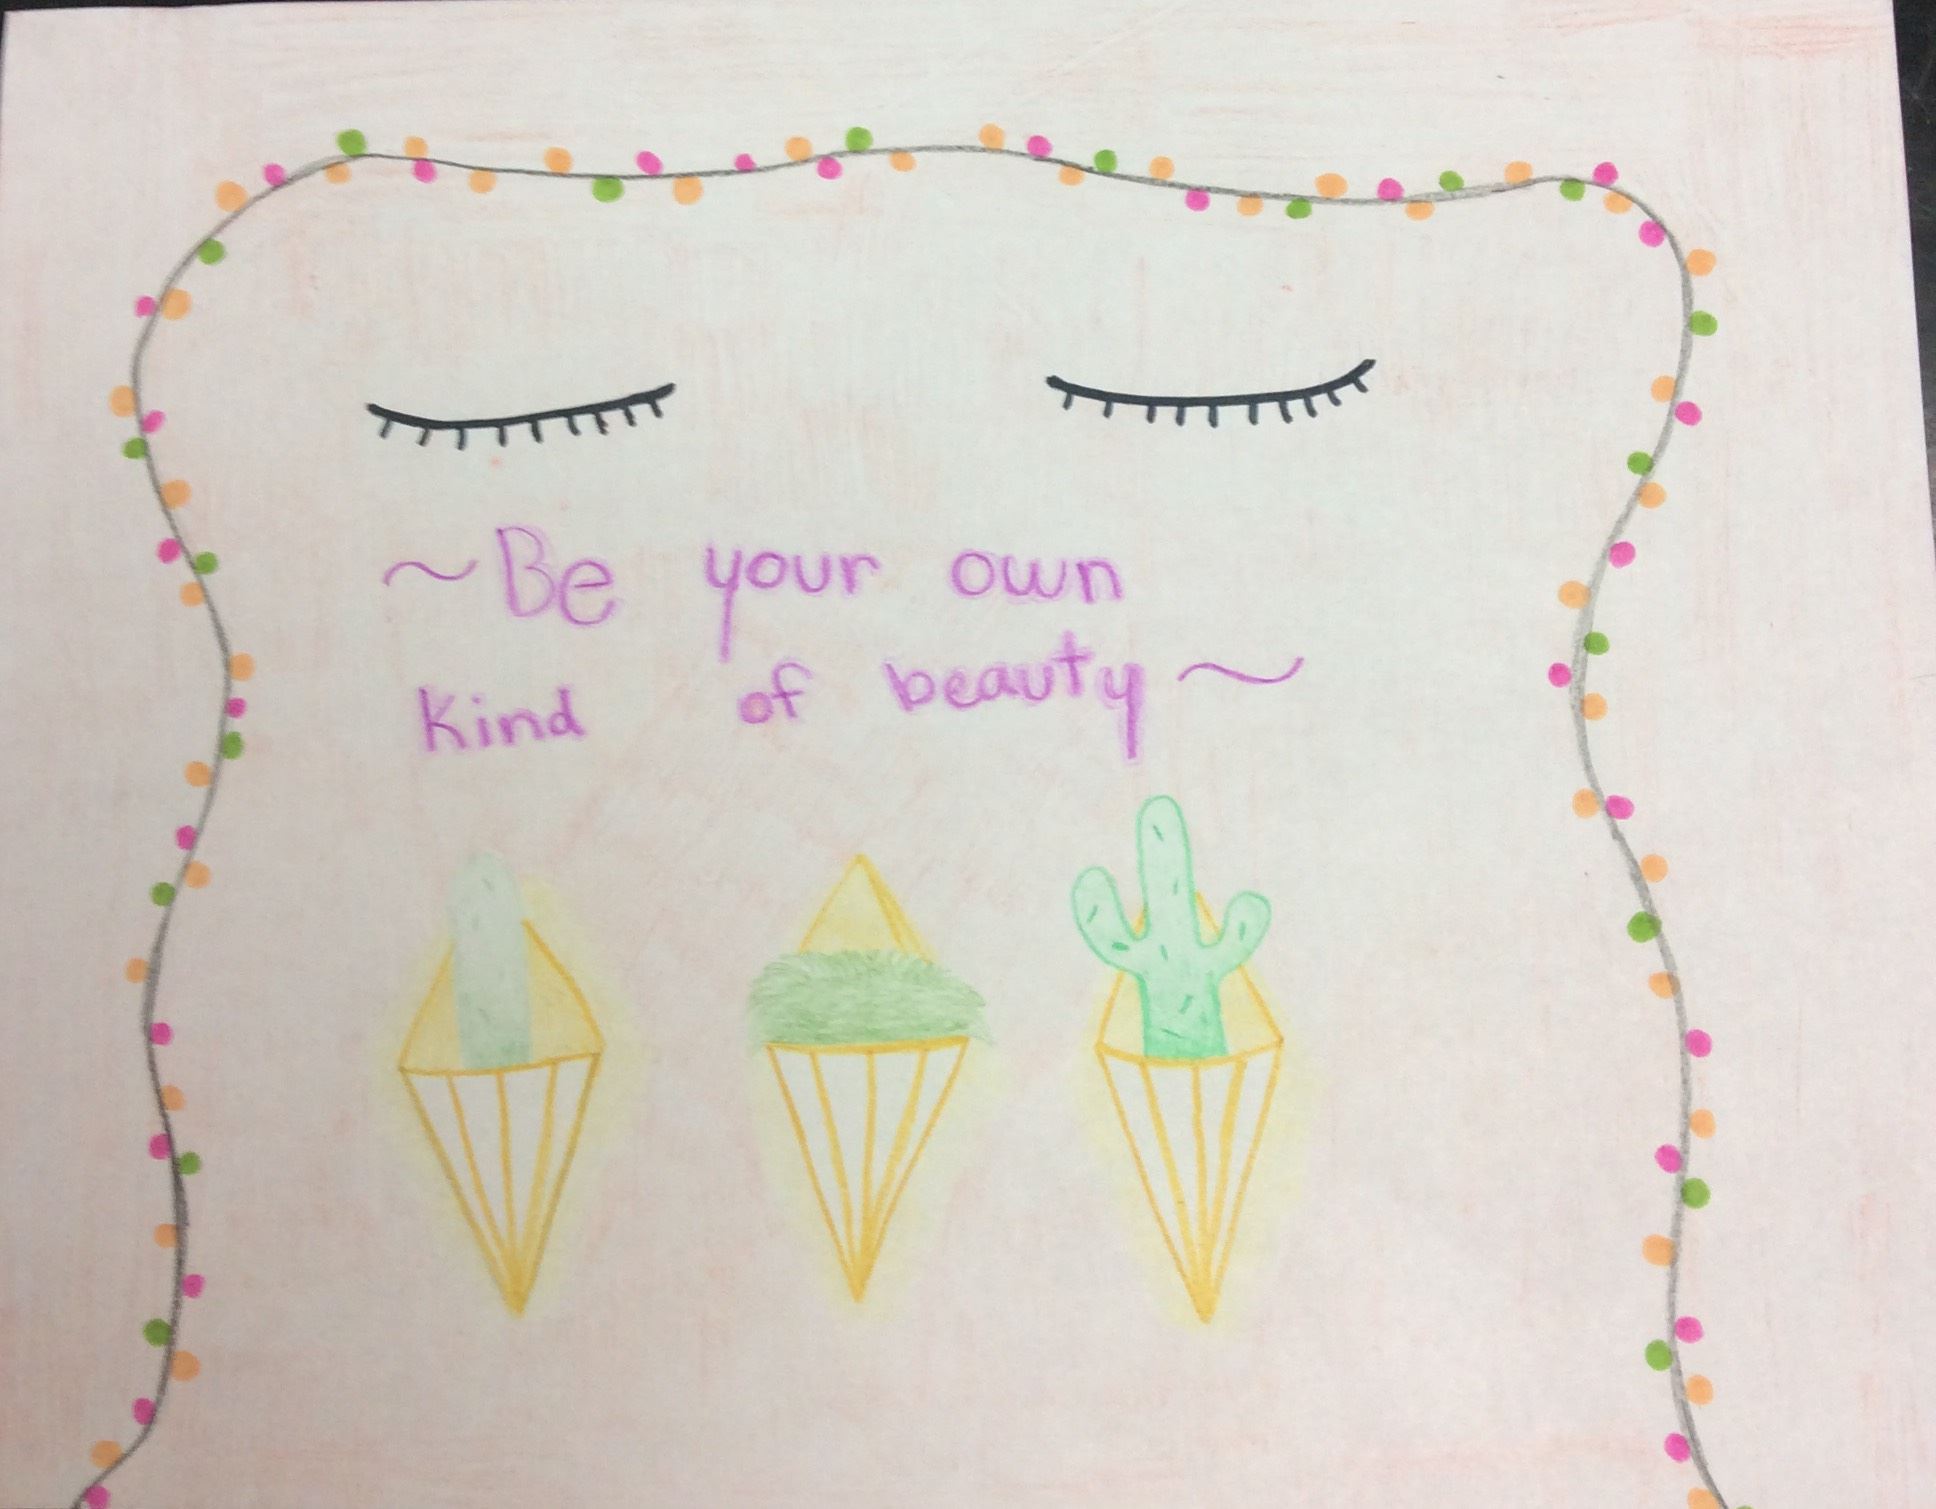 ~Be your own
kind of beauty~